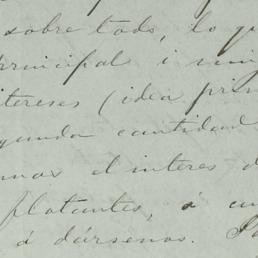 sobre todo, lo qu
principal i
itereses (idea prin
gunda cantidad
mas el interes d
flotantes, á
á dársenas.